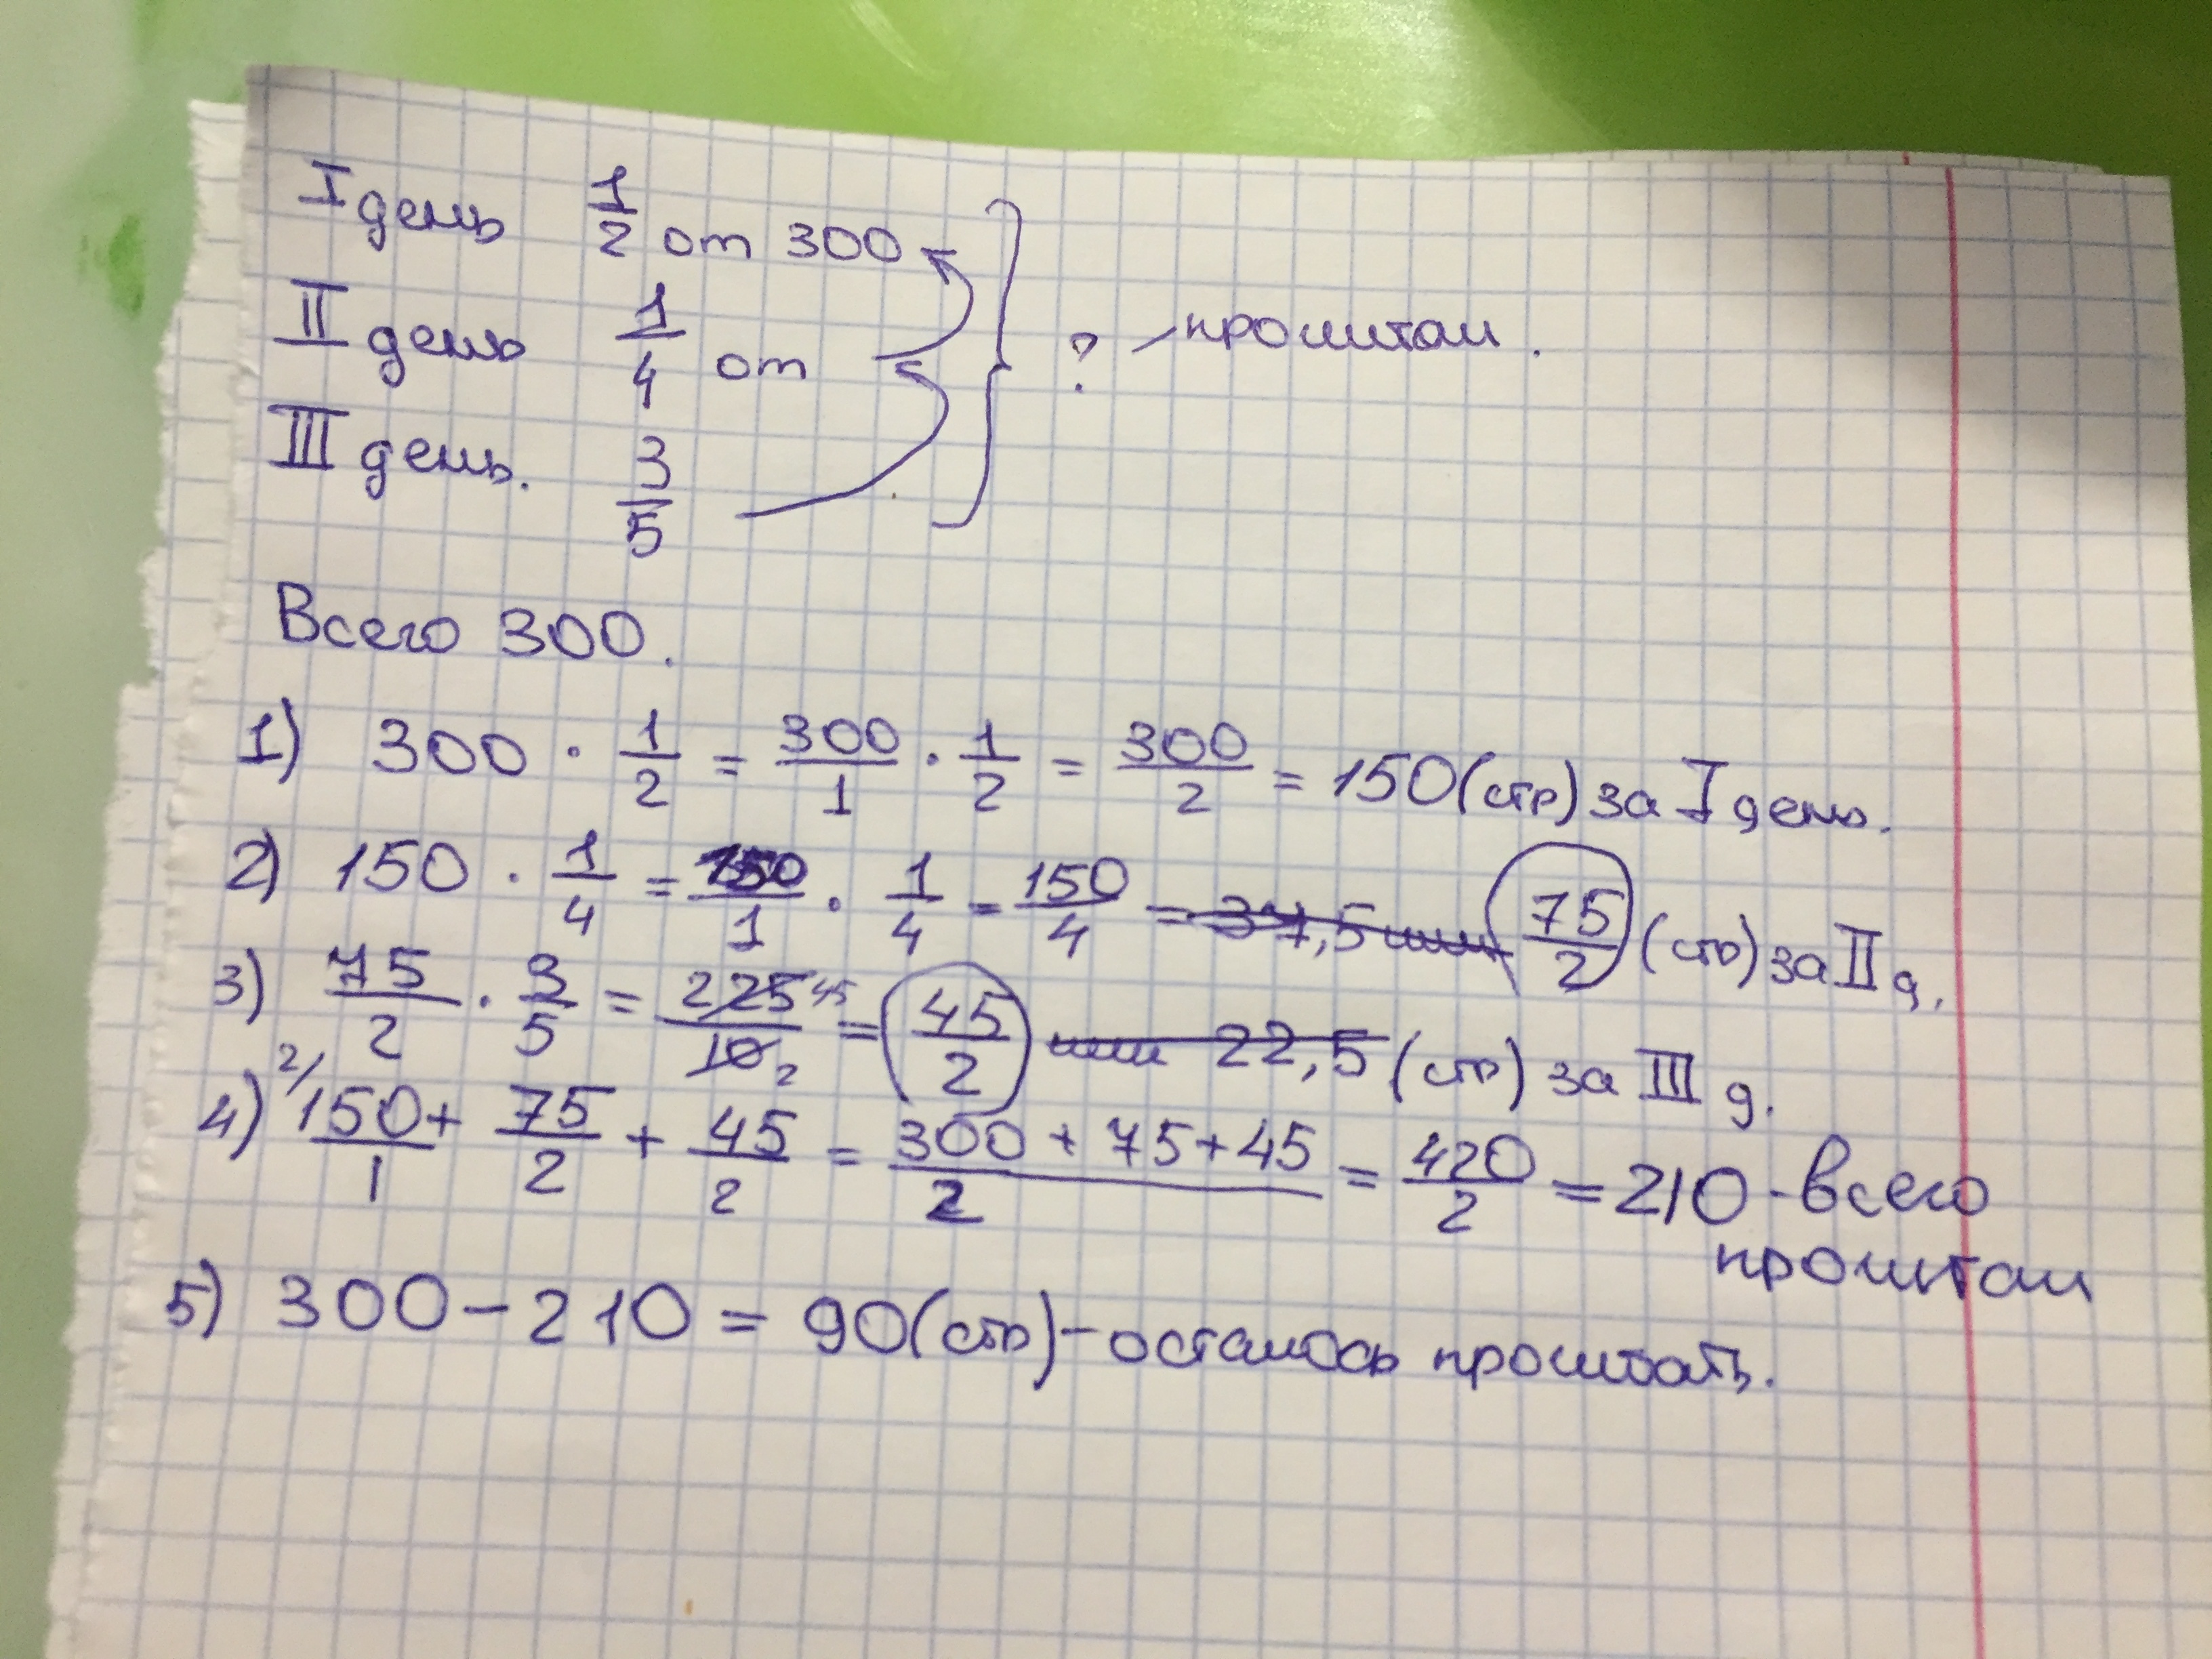 I день 1/2 от 300
II день 1/4 от
? - прочитал.
III день. 3/5
Всего 300.
1) 300 · 1/2 = 300/1 · 1/2 = 300/2 = 150 (стр) за I день.
2) 150 · 1/4 = 150/1 · 1/4 = 150/4 = 37,5 или 75/2 (стр) за II д.
3) 75/2 · 3/5 = 225 45/10 2 = 45/2 или 22,5 (стр) за III д.
4) 2/ 150/1 + 75/2 + 45/2 = 300 + 75 + 45/2 = 420/2 = 210 - всего
прочитал
5) 300 - 210 = 90 (стр) - осталось прочитать.